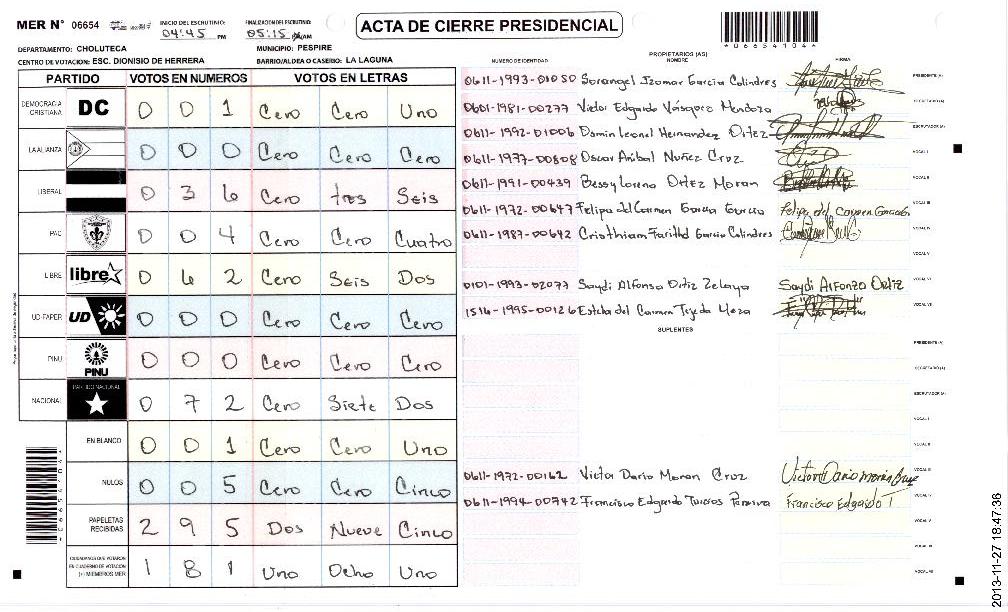 MER N° 06654 INICIO DEL ESCRUTINIO: 04:45 PM FINALIZACION DEL ESCRUTINIO: 05:15 AM
ACTA DE CIERRE PRESIDENCIAL
*066541044*
DEPARTAMENTO: CHOLUTECA MUNICIPIO: PESPIRE
CENTRO DE VOTACION: ESC. DIONISIO DE HERRERA BARRIO/ALDEA O CASERIO: LA LAGUNA
PARTIDO VOTOS EN NUMEROS VOTOS EN LETRAS
DEMOCRACIA CRISTIANA DC 0 0 1 Cero Cero Uno
LA ALIANZA 0 0 0 Cero Cero Cero
LIBERAL 0 3 6 Cero tres Seis
PAC 0 0 4 Cero Cero Cuatro
LIBRE libre 0 6 2 Cero Seis Dos
UD-FAPER UD 0 0 0 Cero Cero Cero
PINU PINU 0 0 0 Cero Cero Cero
NACIONAL PARTIDO NACIONAL 0 7 2 Cero Siete Dos
EN BLANCO 0 0 1 Cero Cero Uno
NULOS 0 0 5 Cero Cero Cinco
PAPELETAS RECIBIDAS 2 9 5 Dos Nueve Cinco
CIUDADANOS QUE VOTARON EN CUADERNO DE VOTACION (+) MIEMBROS MER 1 8 1 Uno Ocho Uno
PROPIETARIOS (AS)
NUMERO DE IDENTIDAD NOMBRE FIRMA
0611-1993-01050 Sorangel Izamar Garcia Colindres PRESIDENTE (A)
0601-1981-00277 Victor Edgardo Vásquez Mendoza SECRETARIO (A)
0611-1992-01006 Damin Leonel Hernandez Ortez ESCRUTADOR (A)
0611-1977-00808 Oscar Anibal Nuñez Cruz VOCAL I
0611-1991-00439 Bessy Lorena Ortez Moran VOCAL II
0611-1972-00647 Felipa del Carmen Garcia Garcia Felipa del Carmen Garcia VOCAL III
0611-1987-00642 Cristhiam Farithd Garcia Colindres VOCAL IV
VOCAL V
0101-1993-02077 Saydi Alfonso Ortiz Zelaya Saydi Alfonzo Ortiz VOCAL VI
1516-1995-00126 Estela del Carmen Tejeda Meza VOCAL VII
SUPLENTES
PRESIDENTE (A)
SECRETARIO (A)
ESCRUTADOR (A)
VOCAL I
VOCAL II
0611-1972-00162 Victor Dario Moran Cruz Victor Dario Moran Cruz VOCAL III
0611-1994-00742 Francisco Edgardo Francisco Edgardo T VOCAL IV
VOCAL V
VOCAL VI
VOCAL VII
2013-11-27 18:47:36